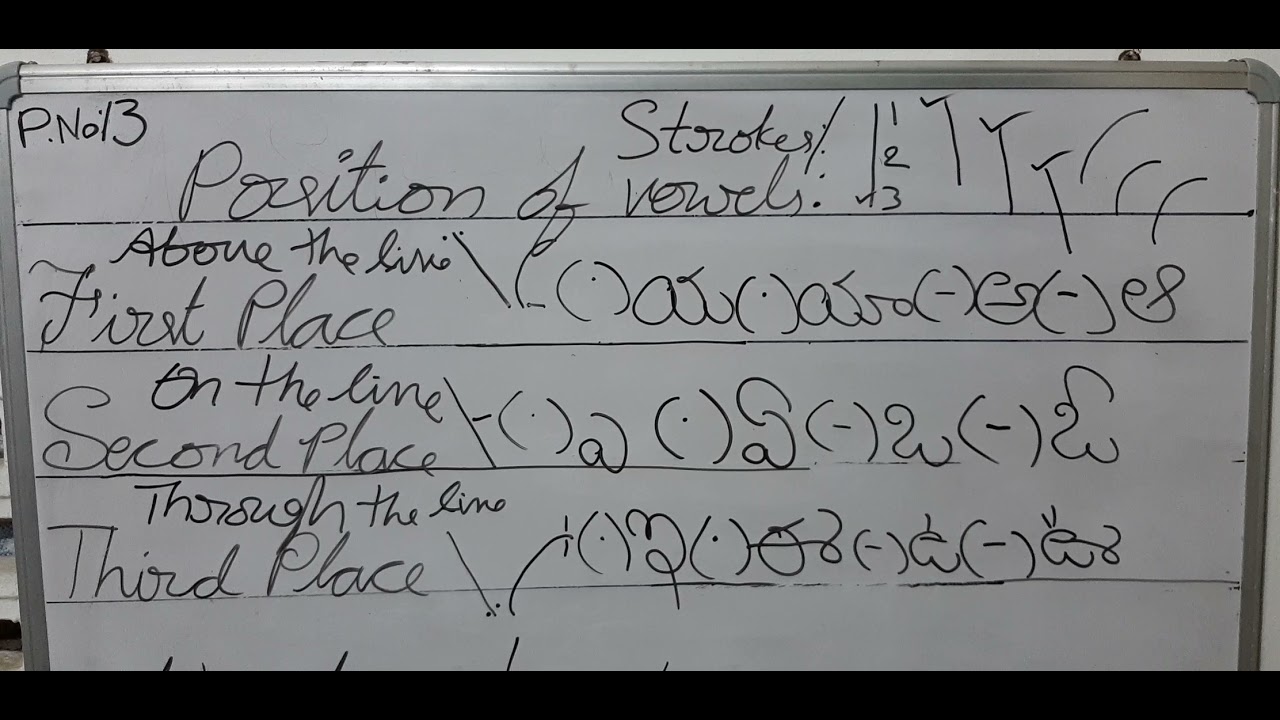 P.No 13
Strokes/.
Position of vowels: 1 2 3
Above the line
First Place (·) (·) (-) (-)
On the line
Second Place (·) ఎ (·) ఏ (-) ఒ (-) ఓ
Through the line
Third Place (·) ఇ (·) ఈ (-) ఉ (-) ఊ